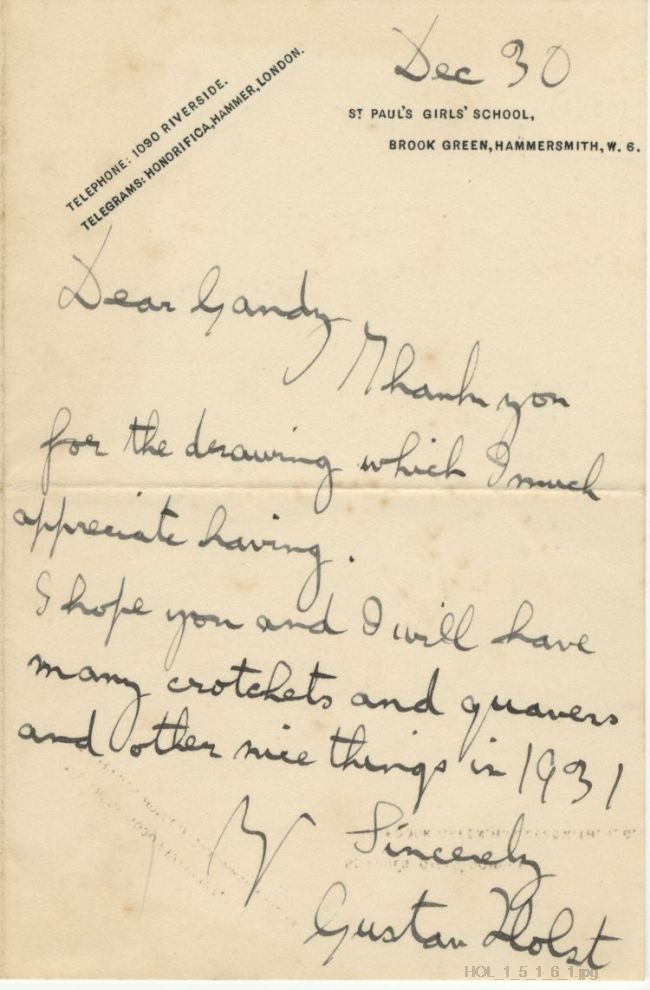 Dec 30
TELEPHONE: 1090 RIVERSIDE.
TELEGRAMS: HONORIFICA, HAMMER, LONDON.
ST PAUL'S GIRLS' SCHOOL,
BROOK GREEN, HAMMERSMITH, W. 6.
Dear Gandy
Thank you
for the drawing which I much
appreciate having.
I hope you and I will have
many crotchets and quavers
and other nice things in 1931
Yr Sincerely
Gustav Holst
HOL_1_5_1_6_1.jpg